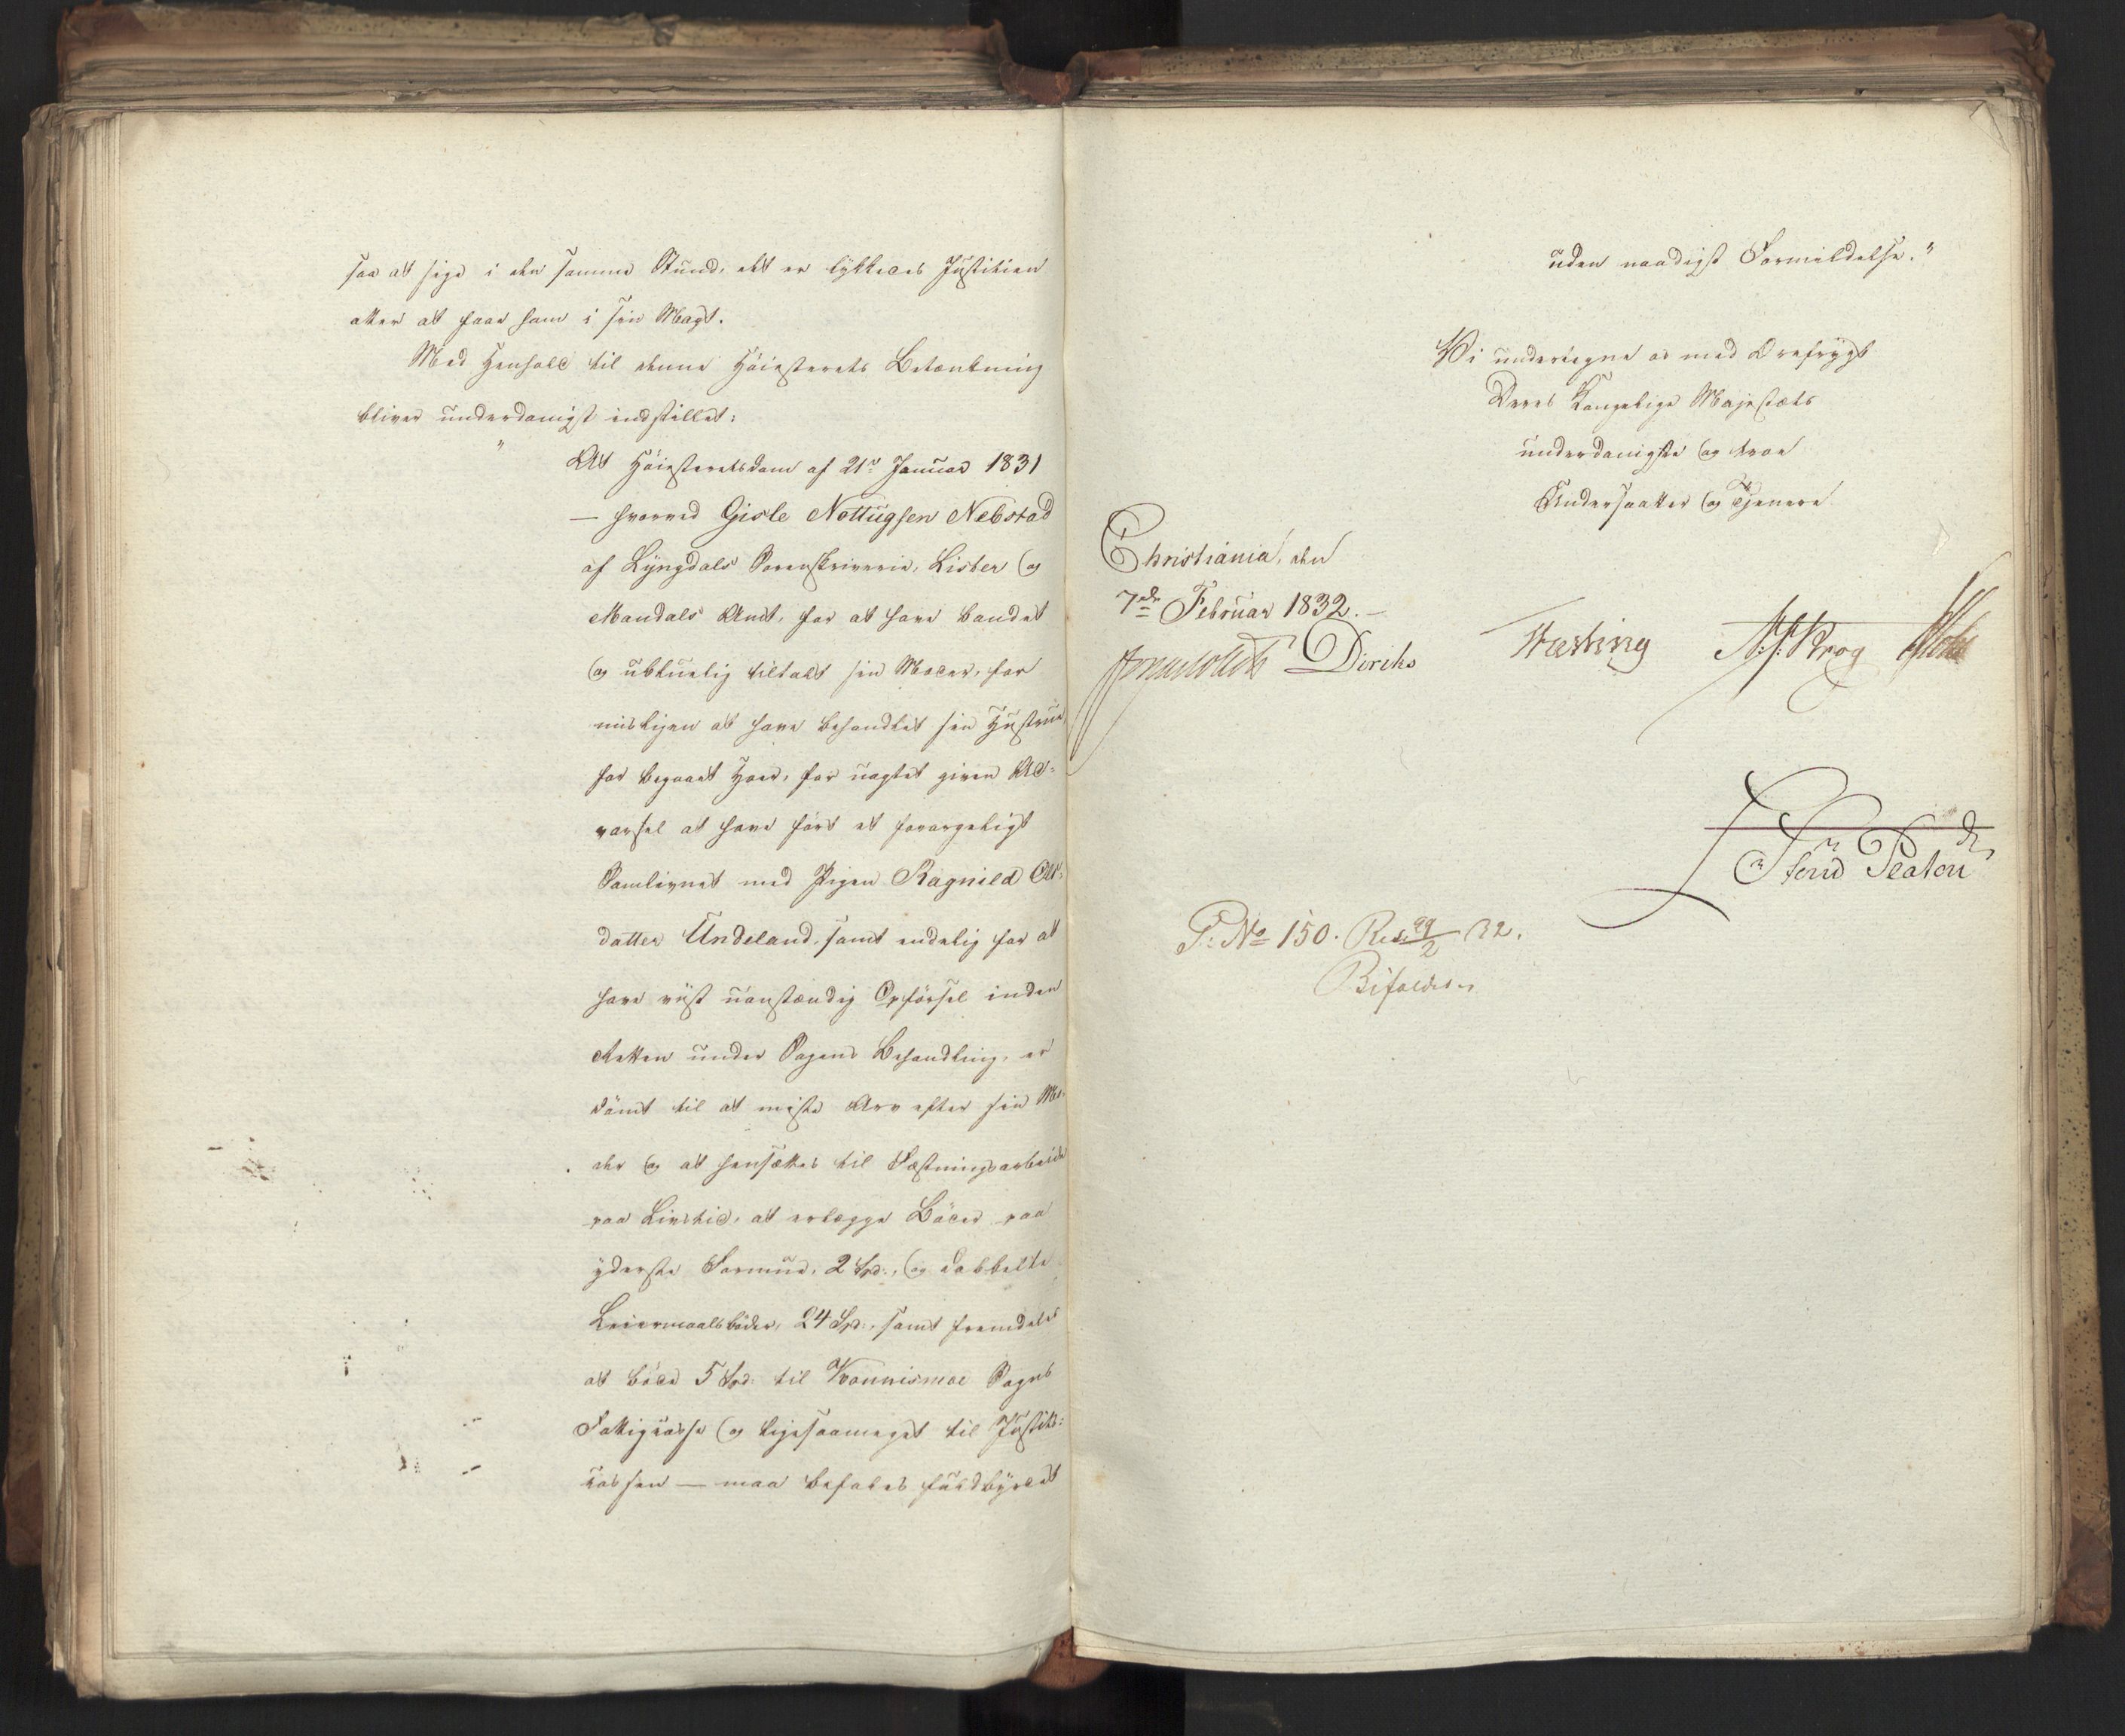 saa at sige i den samme Stund, det er lykkedes Justitien
atter at faae ham i sin Magt.
Med Henhold til denne Høiesterets Betænkning
bliver underdanigst indstillet:
"At Høiesteretsdom af 21de Januar 1831
— hvorved Gisle Nottugsen Nebstad
af Lyngdals Sorenskriverie, Lister og
Mandals Amt, for at have bandet
og utilbørlig tiltalt sin Moder, for
misligen at have behandlet sin Hustrue,
for begaaet Hoer, for uagtet given Ad-
varsel at have ført et forargeligt
Samlevnet med Pigen Ragnild
datter Undeland, samt endelig for at
have viist uanstændig Opførsel inden
Retten under Sagens Behandling, er
dømt til at miste Arv efter sin Mo-
der og at hensættes til Fæstningsarbeide
paa Livstid, at erlægge Bøder paa
yderste Formue, 2 Spd:, og dobbelte
Leiermaalsbøder, 24 Spd:, samt fremdeles
at bøde 5 Spd: til Vonnismoe Sogns
Fattigcasse og ligesaameget til Justits-
cassen — maa befales fuldbyrdet
uden naadigst Formildelse."
Vi undertegne os med Ærefrygt
Deres Kongelige Majestæts
underdanigste og troe
Undersaatter og Tjenere
Christiania, den
7de Februar 1832.—
Diriks Fasting Krog
Platou
P: No 150. Res: 29/2 32.
Bifaldes